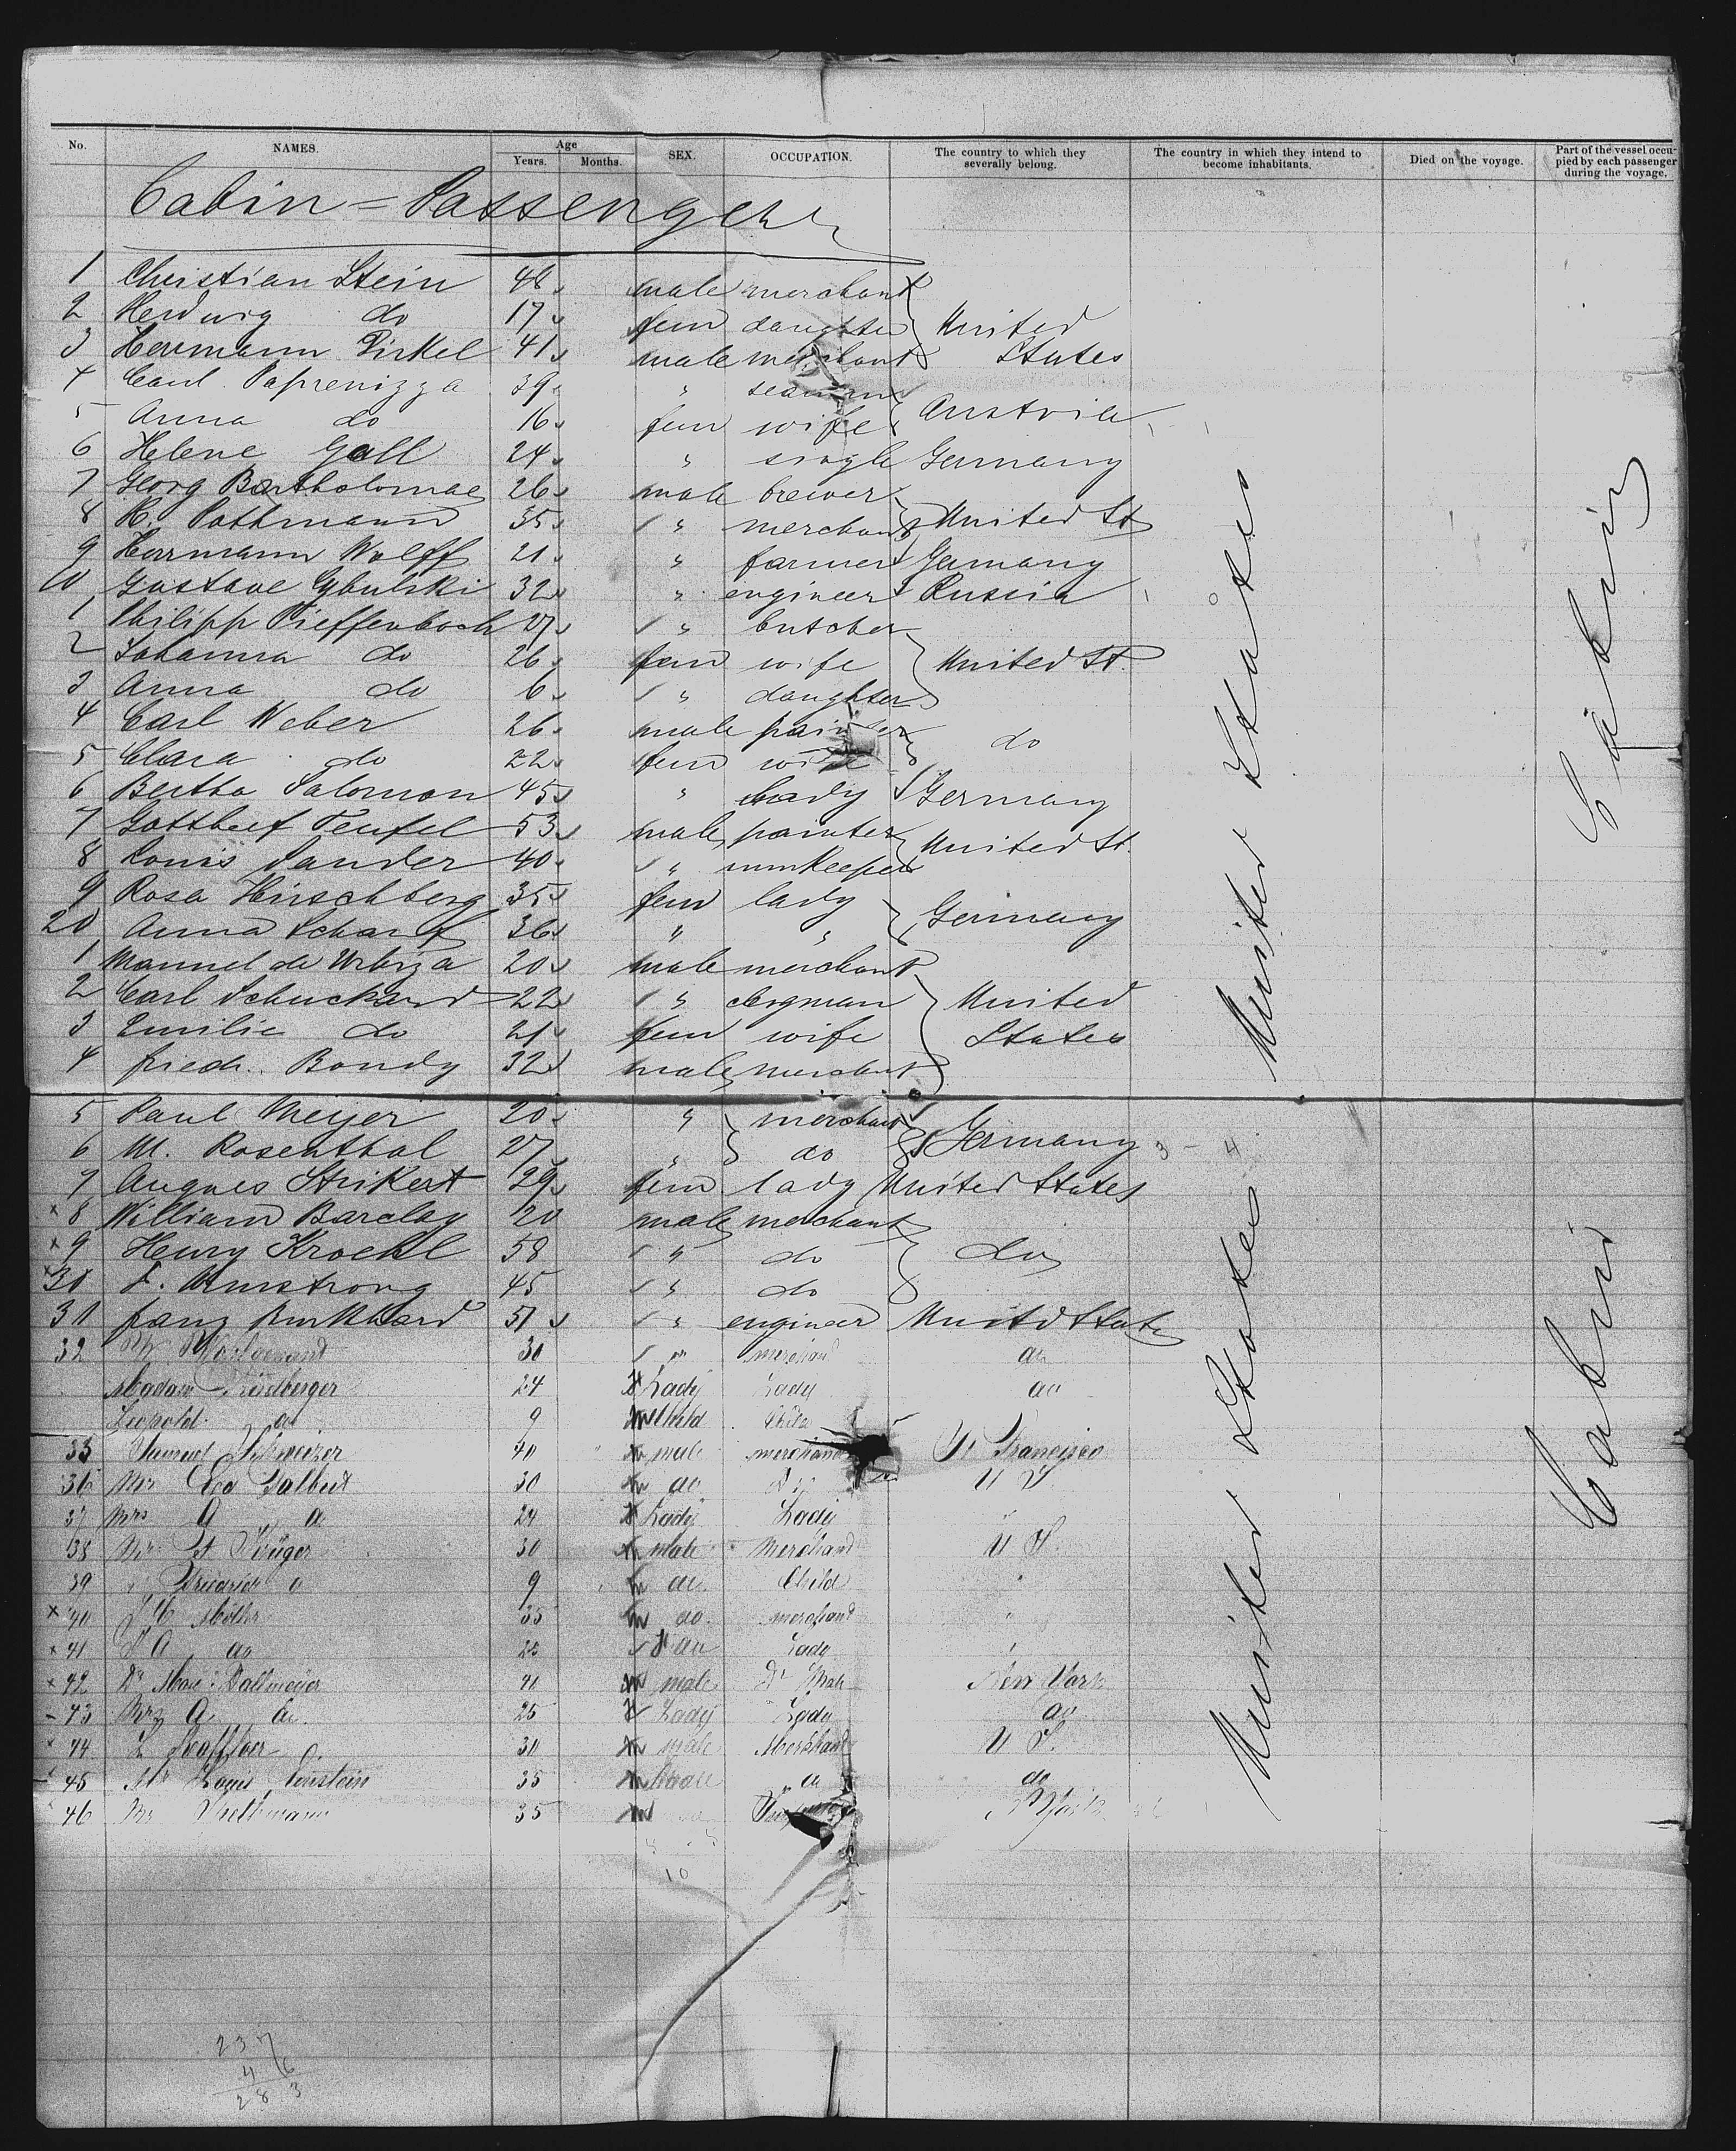 No. NAMES. Age Years. Months. SEX. OCCUPATION. The country to which they severally belong. The country in which they intend to become inhabitants. Died on the voyage. Part of the vessel occupied by each passenger during the voyage.
Cabin = Passengers
1 Christian Stein 48 male merchant
2 Hedwig do 17 fem daughter United
3 Herrmann Dirkel 41 male merchant States
4 Carl Paprenizza 39 " seaman
5 Anna do 16 fem wife Austria
6 Helene Gall 24 " single Germany
7 Georg Bartholomae 26 male brewer
8 H. Pothmann 35 " merchant United St
9 Herrmann Wolff 21 " farmer Germany
10 Gustave Cybulski 32 " engineer Russia
1 Philipp Tieffenbach 27 " butcher
2 Johanna do 26 fem wife United St.
3 Anna do 6 " daughter
4 Carl Weber 26 male painter do
5 Clara do 22 fem wife
6 Bertha Salomon 45 " lady Germany
7 Gotthelf Teufel 53 male painter United St.
8 Louis Sander 40 " innkeeper
9 Rosa Hirschberg 35 fem lady
20 Anna Scharf 36 " " Germany
1 Manuel de Urbiza 20 male merchant
2 Carl Schuckard 22 " clergman United
3 Emilie do 21 fem wife States
4 friedr. Bondy 32 male merchant
5 Paul Meyer 20 " merchant
6 M. Rosenthal 27 " do Germany 3 - 4
7 Augnes Strikert 29 fem lady United States
x 8 William Barclay 20 male merchant
x 9 Henry Kroehl 58 " do do
x 30 F. Armstrong 45 " do
31 franz Burkhard 51 " engineer United State
32 30 " merchand do
Madam 24 Lady Lady do
Leopold do 9 Child
33 Samuel Schweizer 40 male merchand St Francisco
36 Mr Leo Galbert 30 do U S.
37 Mrs a 24 Lady Lady
38 Mr Krüger 30 male Merchand U S.
39 " 9 do Child
x 40 Möller 35 do. merchand
x 41 A do 25 do Lady
x 42 Dr Dallmeyer 41 male Dr New York
- 43 Mrs A do. 25 Lady Lady do
x 44 30 male Merkhand U S.
45 Mr Louis 35 male do do
46 Mr 35 N York
10
237
46
283
United States
United States
Cabin